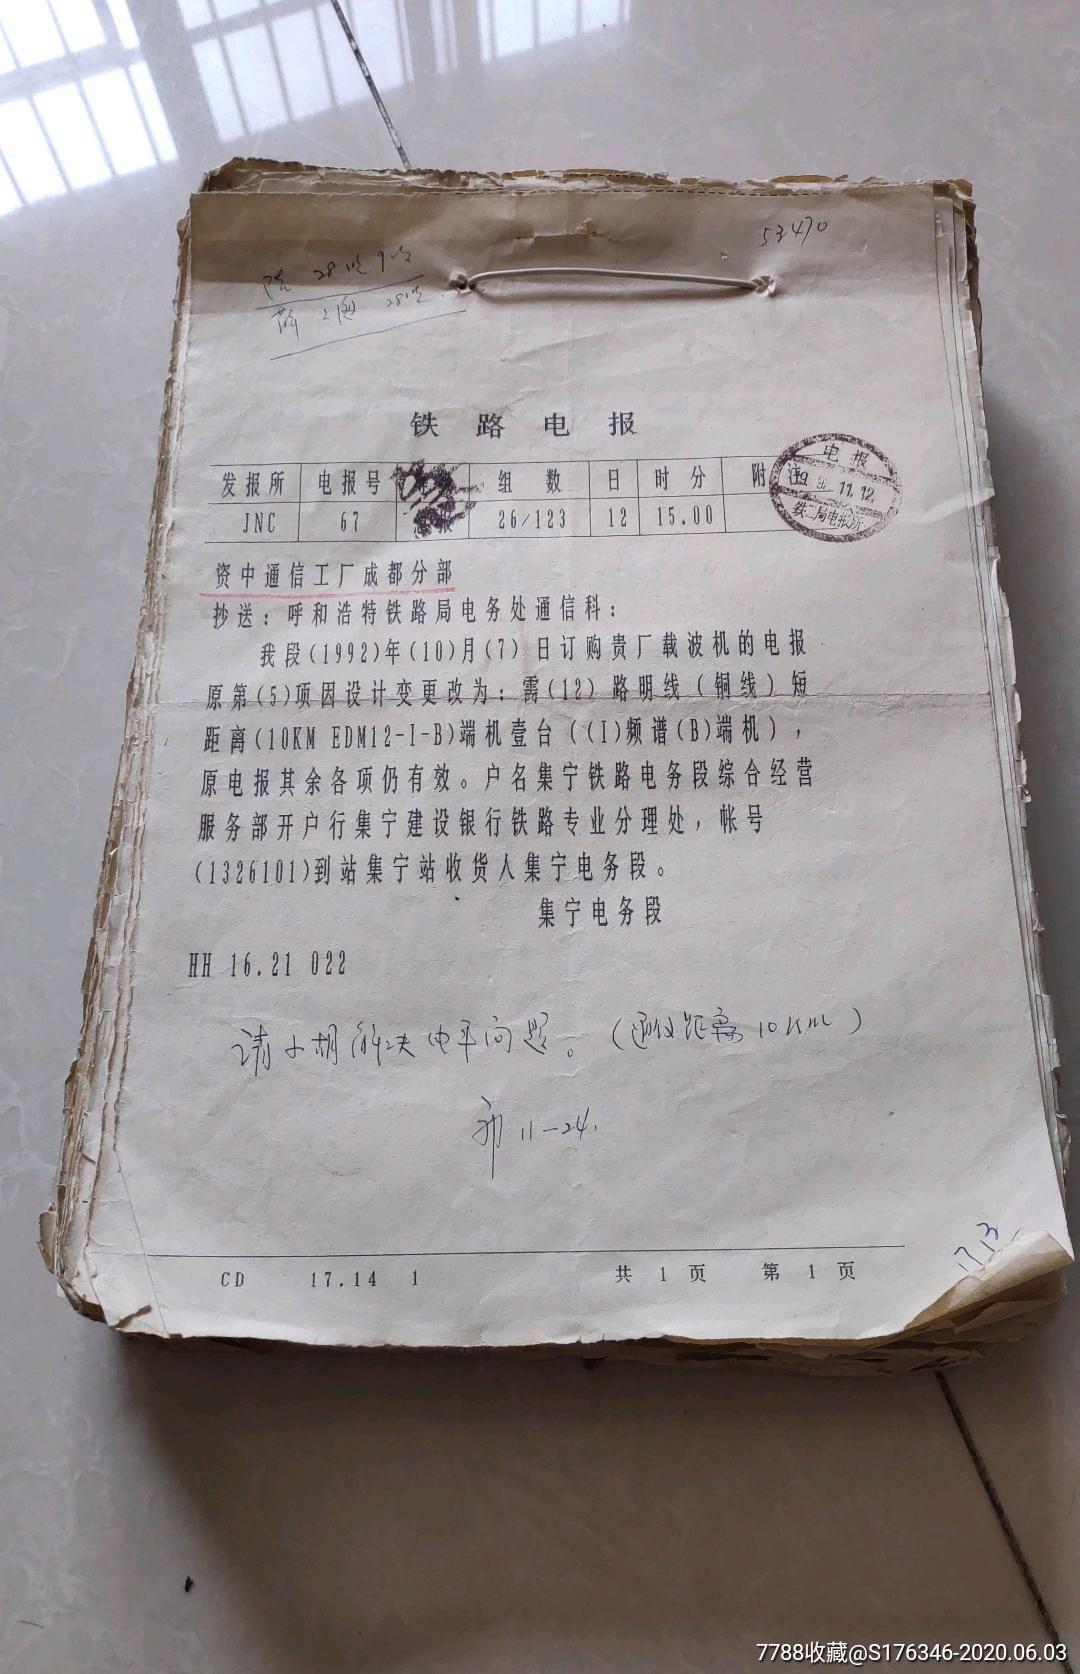 53470
28
上海 28
铁路电报
发报所 电报号 组数 日 时分 附注
JNC 67 26/123 12 15.00
电报
1992.11.12
铁二局电报所
资中通信工厂成都分部
抄送：呼和浩特铁路局电务处通信科：
我段(1992)年(10)月(7)日订购贵厂载波机的电报
原第(5)项因设计变更改为：需(12)路明线(铜线)短
距离(10KM EDM12-I-B)端机壹台((I)频谱(B)端机)，
原电报其余各项仍有效。户名集宁铁路电务段综合经营
服务部开户行集宁建设银行铁路专业分理处，帐号
(1326101)到站集宁站收货人集宁电务段。
集宁电务段
HH 16.21 022
请小胡解决电平问题。(通信距离10KM)
11-24.
CD 17.14 1 共 1 页 第 1 页
7788收藏@S176346-2020.06.03